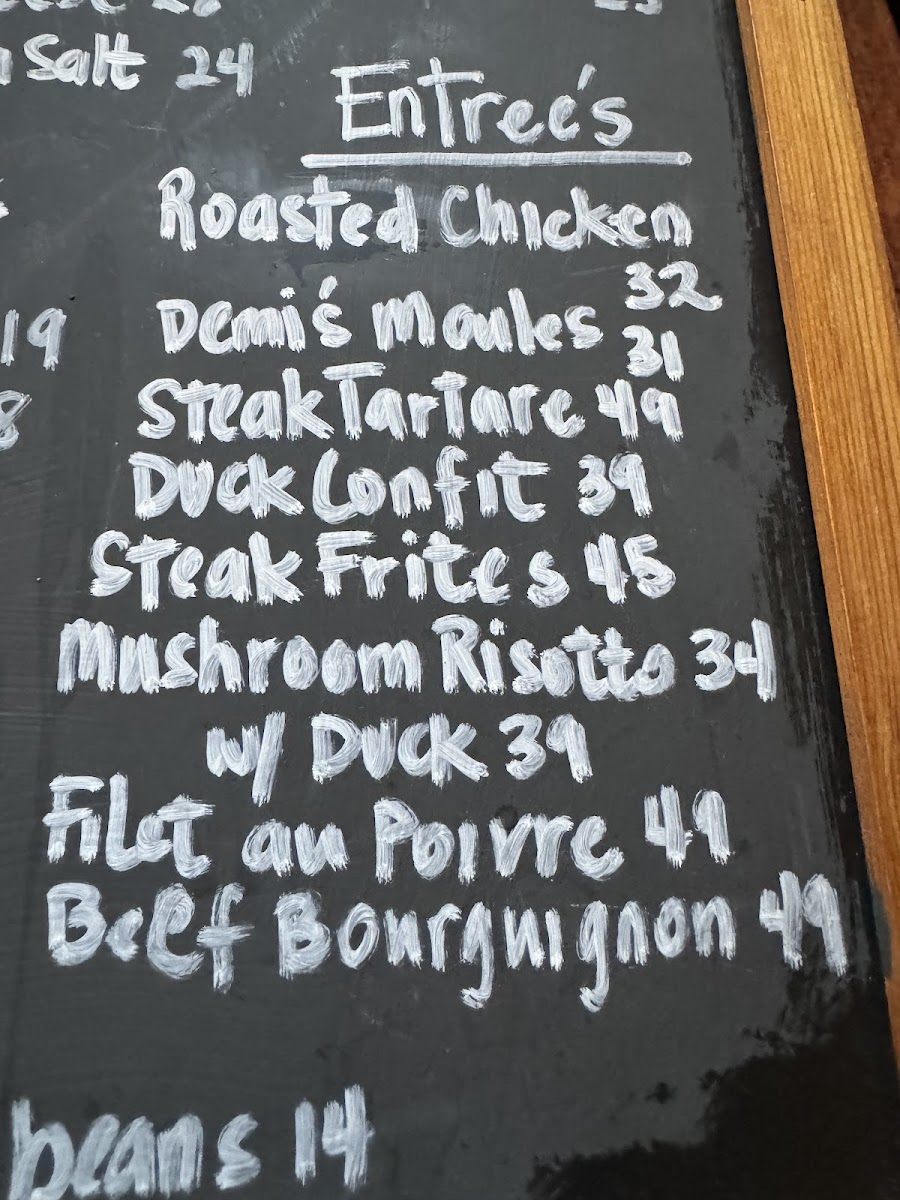 Salt 24
Entree's
Roasted Chicken
32
19
Demi's Moules
31
Steak Tartare 49
8
Duck Confit 39
Steak Frites 45
Mushroom Risotto 34
w/ Duck 39
Filet au Poivre 49
Beef Bourguignon 49
beans 14